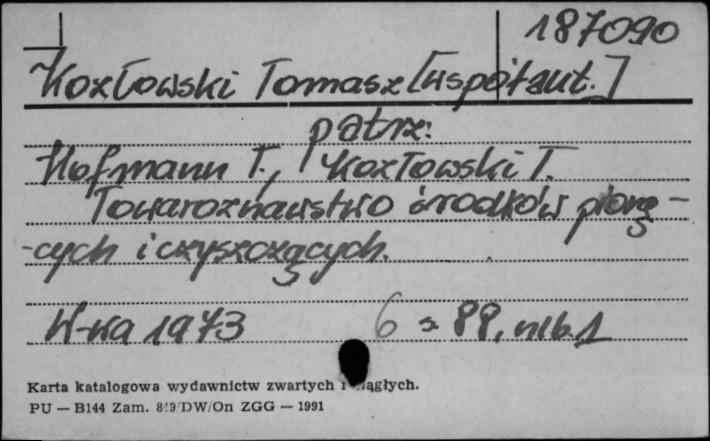 187090
Kozłowski Tomasz [współaut.]
patrz:
Hofmann T., Kozłowski T.
Towaroznawstwo środków piorą-
-cych i czyszczących.
W-wa 1973 6 s. 88, nlb. 1
Karta katalogowa wydawnictw zwartych i ciągłych.
PU — B144 Zam. 819/DW/On ZGG — 1991